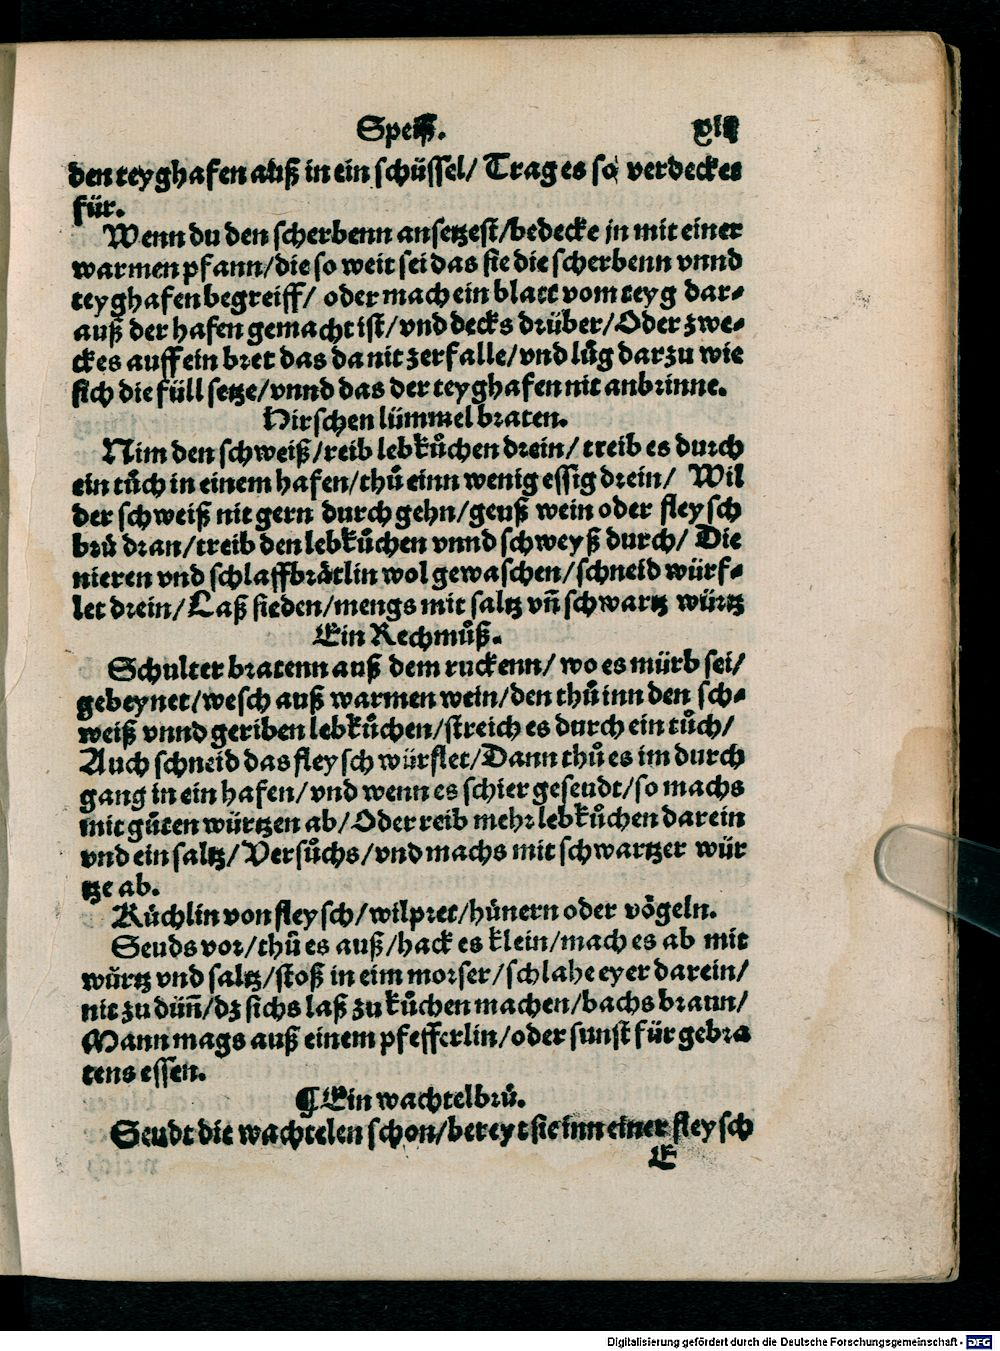 Speiß.
den teyghafen auß in ein schüssel/ Trag es so verdeckes
für.
Wenn du den scherbenn ansetzest/bedecke jn mit einer
warmen pfann/die so weit sei das sie die scherbenn vnnd
teyghafen begreiff/ oder mach ein blatt vom teyg dar-
auß der hafen gemacht ist/vnd decks drüber/Oder zwe-
ckes auff ein bret das da nit zerfalle/vnd lůg darzu wie
sich die füll setze/vnnd das der teyghafen nit anbrinne.
Hirschen lümmel braten.
Nim den schweiß/reib lebkůchen drein/ treib es durch
ein tůch in einem hafen/thů einn wenig essig drein/ Wil
der schweiß nit gern durch gehn/geuß wein oder fleysch
brů dran/treib den lebkůchen vnnd schweyß durch/ Die
nieren vnd schlaffbrätlin wol gewaschen/schneid würf-
let drein/Laß sieden/mengs mit saltz vñ schwartz würtz
Ein Rechmůß.
Schulter bratenn auß dem ruckenn/ wo es mürb sei/
gebeynet/wesch auß warmen wein/den thů inn den sch-
weiß vnnd geriben lebkůchen/streich es durch ein tůch/
Auch schneid das fleysch würflet/Dann thů es im durch
gang in ein hafen/vnd wenn es schier geseudt/so machs
mit gůten würtzen ab/Oder reib mehr lebkůchen darein
vnd ein saltz/Versůchs/vnd machs mit schwartzer wür
tze ab.
Kůchlin von fleysch/wilpret/hünern oder vögeln.
Seuds vor/thů es auß/hack es klein/mach es ab mit
würtz vnd saltz/stoß in eim morser/schlahe eyer darein/
nit zu düñ/dz sichs laß zu kůchen machen/bachs braun/
Mann mags auß einem pfefferlin/oder sunst für gebra
tens essen.
¶Ein wachtelbrů.
Seudt die wachtelen schon/bereyt sie inn einer fleysch
E
Digitalisierung gefördert durch die Deutsche Forschungsgemeinschaft - DFG